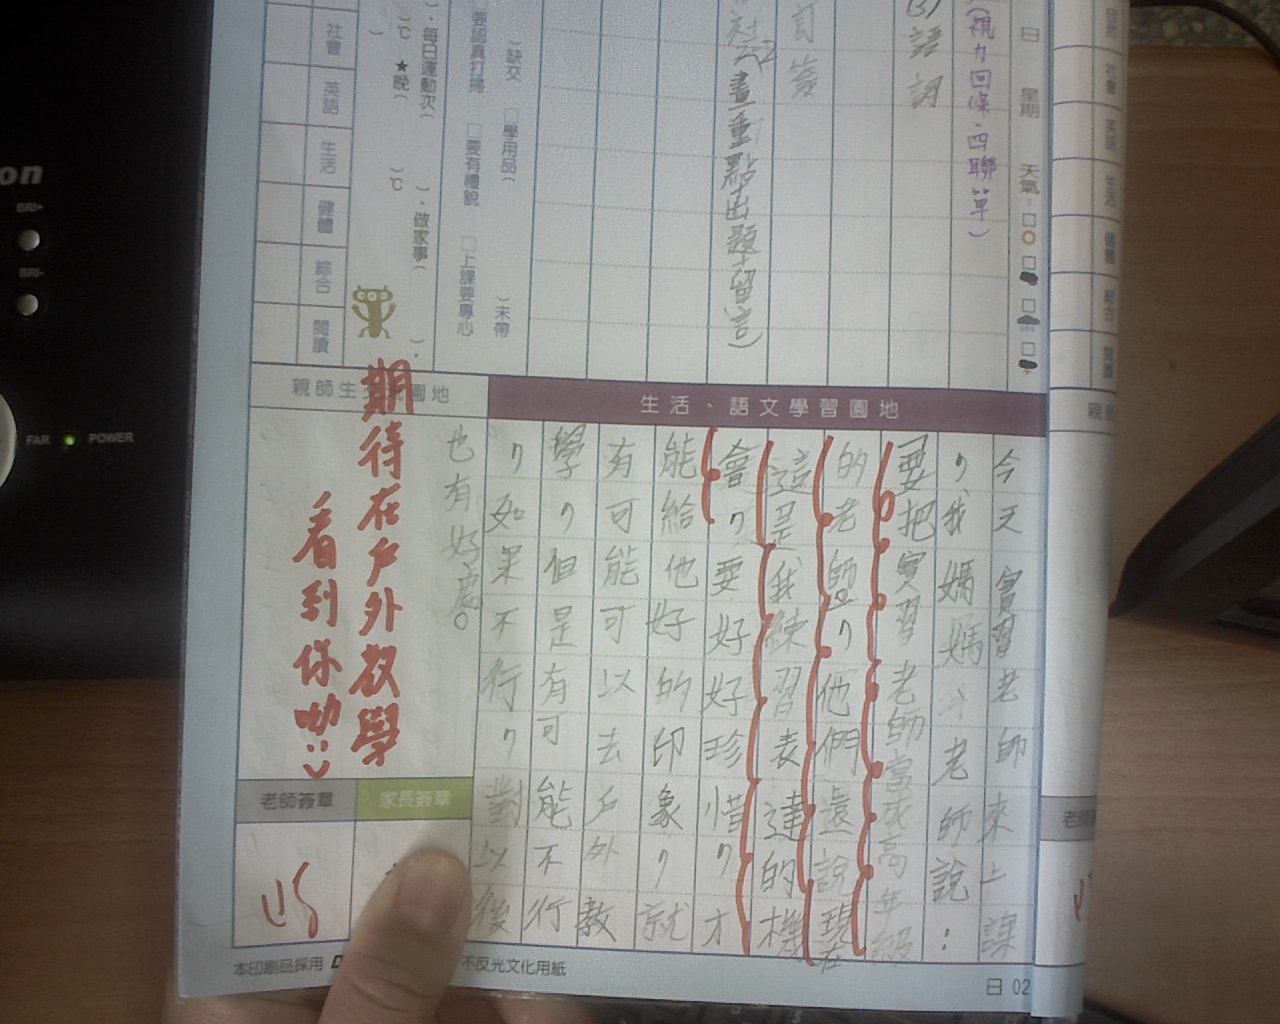 自然
社會
英語
生活
健體
綜合
閱讀
(視力回條、四聯單)
日 星期 天氣:
(3)語詞
訂簽
社
畫重點+出題+留言)
)缺交 學用品(
)未帶
要認真打掃 要有禮貌 上課要專心
)。每日運動次( )。做家事( )。
)℃ ★晚( )℃
社會
英語
生活
健體
綜合
閱讀
生活、語文學習園地
今天實習老師來上課
,我媽媽 老師說:
要把實習老師當成高年級
的老師,他們還說現在
這是我練習表達的機
會,要好好珍惜,才
能給他好的印象,就
有可能可以去戶外教
學,但是有可能不行
,如果不行,對以後
也有好處。
親師生 園地
期待在戶外教學
看到你呦
家長簽章
老師簽章
本印刷品採用
不反光文化用紙
日 02
on
BRI+
BRI-
FAR
POWER